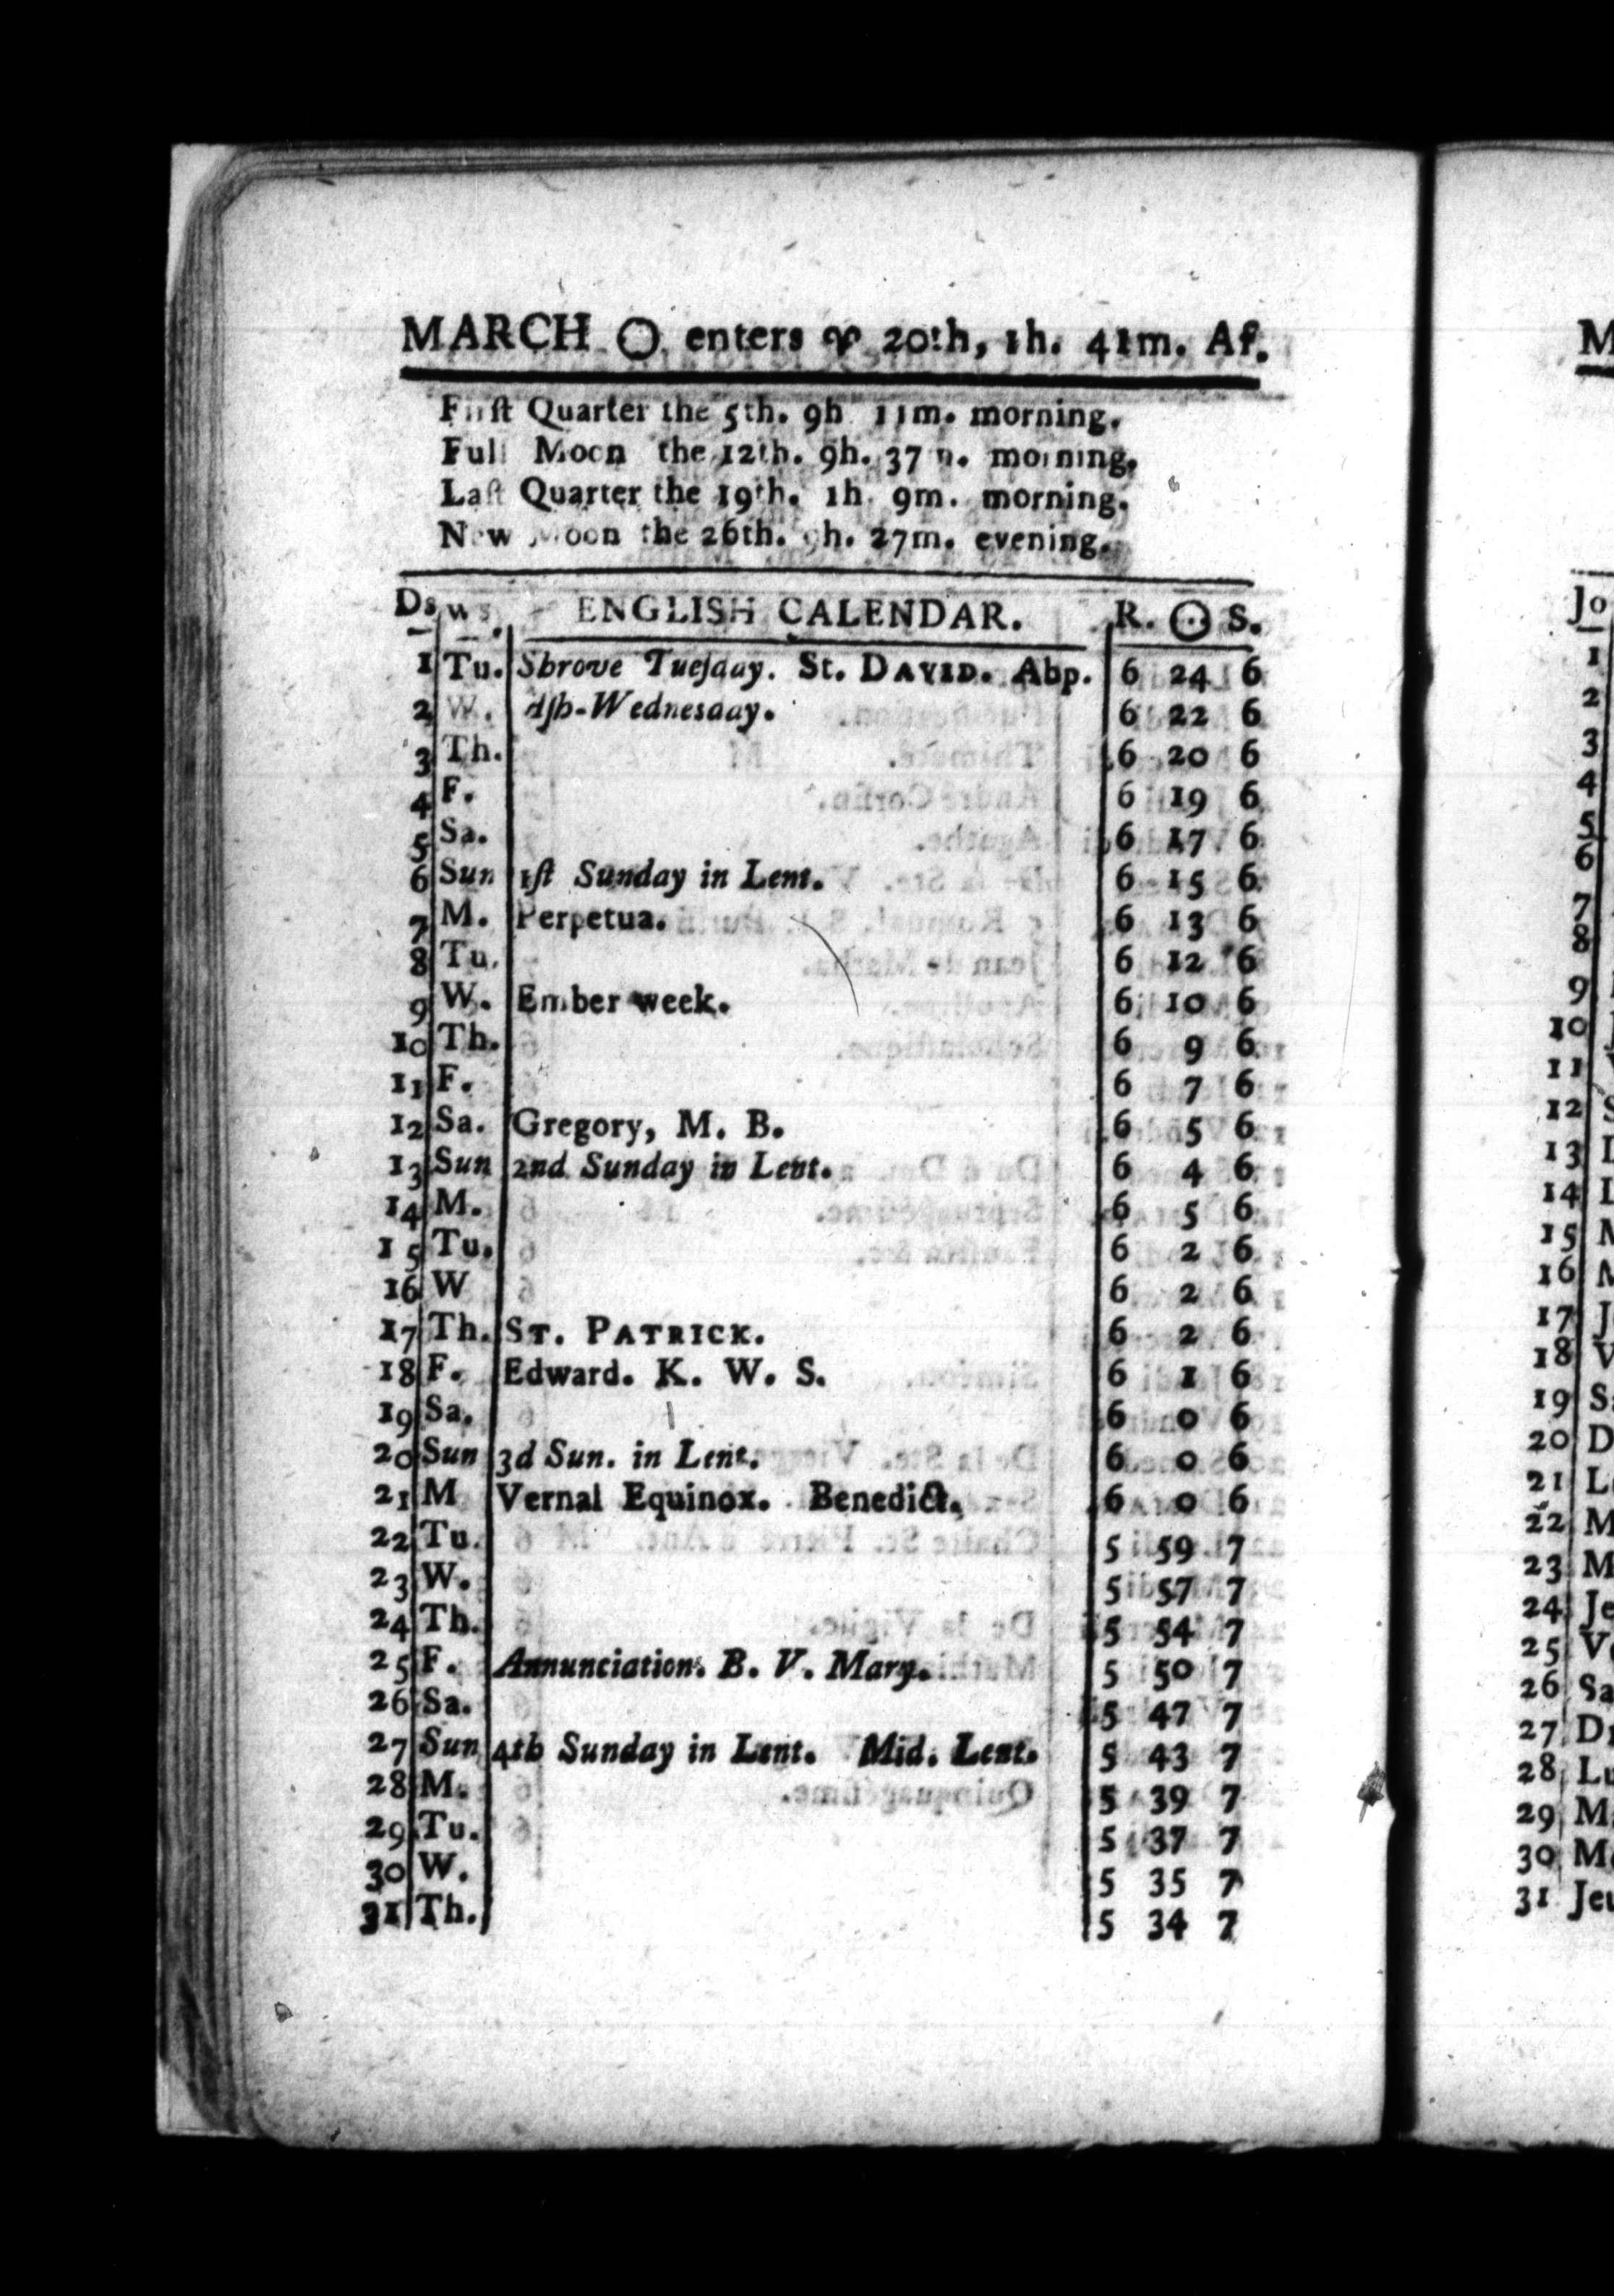 MARCH ☉ enters ♈ 20th, 1h. 41m. Af.
Firſt Quarter the 5th. 9h 11m. morning.
Full Moon the 12th. 9h. 37 m. morning.
Laſt Quarter the 19th. 1h. 9m. morning.
New Moon the 26th. 9h. 27m. evening.
Ds ws. ENGLISH CALENDAR. R. ☉ S.
1 Tu. Shrove Tueſday. St. DAVID. Abp. 6 24 6
2 W. Aſh-Wednesday. 6 22 6
3 Th. 6 20 6
4 F. 6 19 6
5 Sa. 6 17 6
6 Sun 1ſt Sunday in Lent. 6 15 6
7 M. Perpetua. 6 13 6
8 Tu. 6 12 6
9 W. Ember week. 6 10 6
10 Th. 6 9 6
11 F. 6 7 6
12 Sa. Gregory, M. B. 6 5 6
13 Sun 2nd Sunday in Lent. 6 4 6
14 M. 6 5 6
15 Tu. 6 2 6
16 W 6 2 6
17 Th. ST. PATRICK. 6 2 6
18 F. Edward. K. W. S. 6 1 6
19 Sa. 6 0 6
20 Sun 3d Sun. in Lent. 6 0 6
21 M Vernal Equinox. Benedict. 6 0 6
22 Tu. 5 59 7
23 W. 5 57 7
24 Th. 5 54 7
25 F. Annunciation. B. V. Mary. 5 50 7
26 Sa. 5 47 7
27 Sun 4th Sunday in Lent. Mid. Lent. 5 43 7
28 M. 5 39 7
29 Tu. 5 37 7
30 W. 5 35 7
31 Th. 5 34 7
M
Jo
1
2
3
4
5
6
7
8
9
10
11
12 S
13
14 L
15 M
16 M
17 J
18 V
19 S
20 D
21 L
22 M
23 M
24 Je
25 V
26 Sa
27 Di
28 Lu
29 M
30 Me
31 Jeu